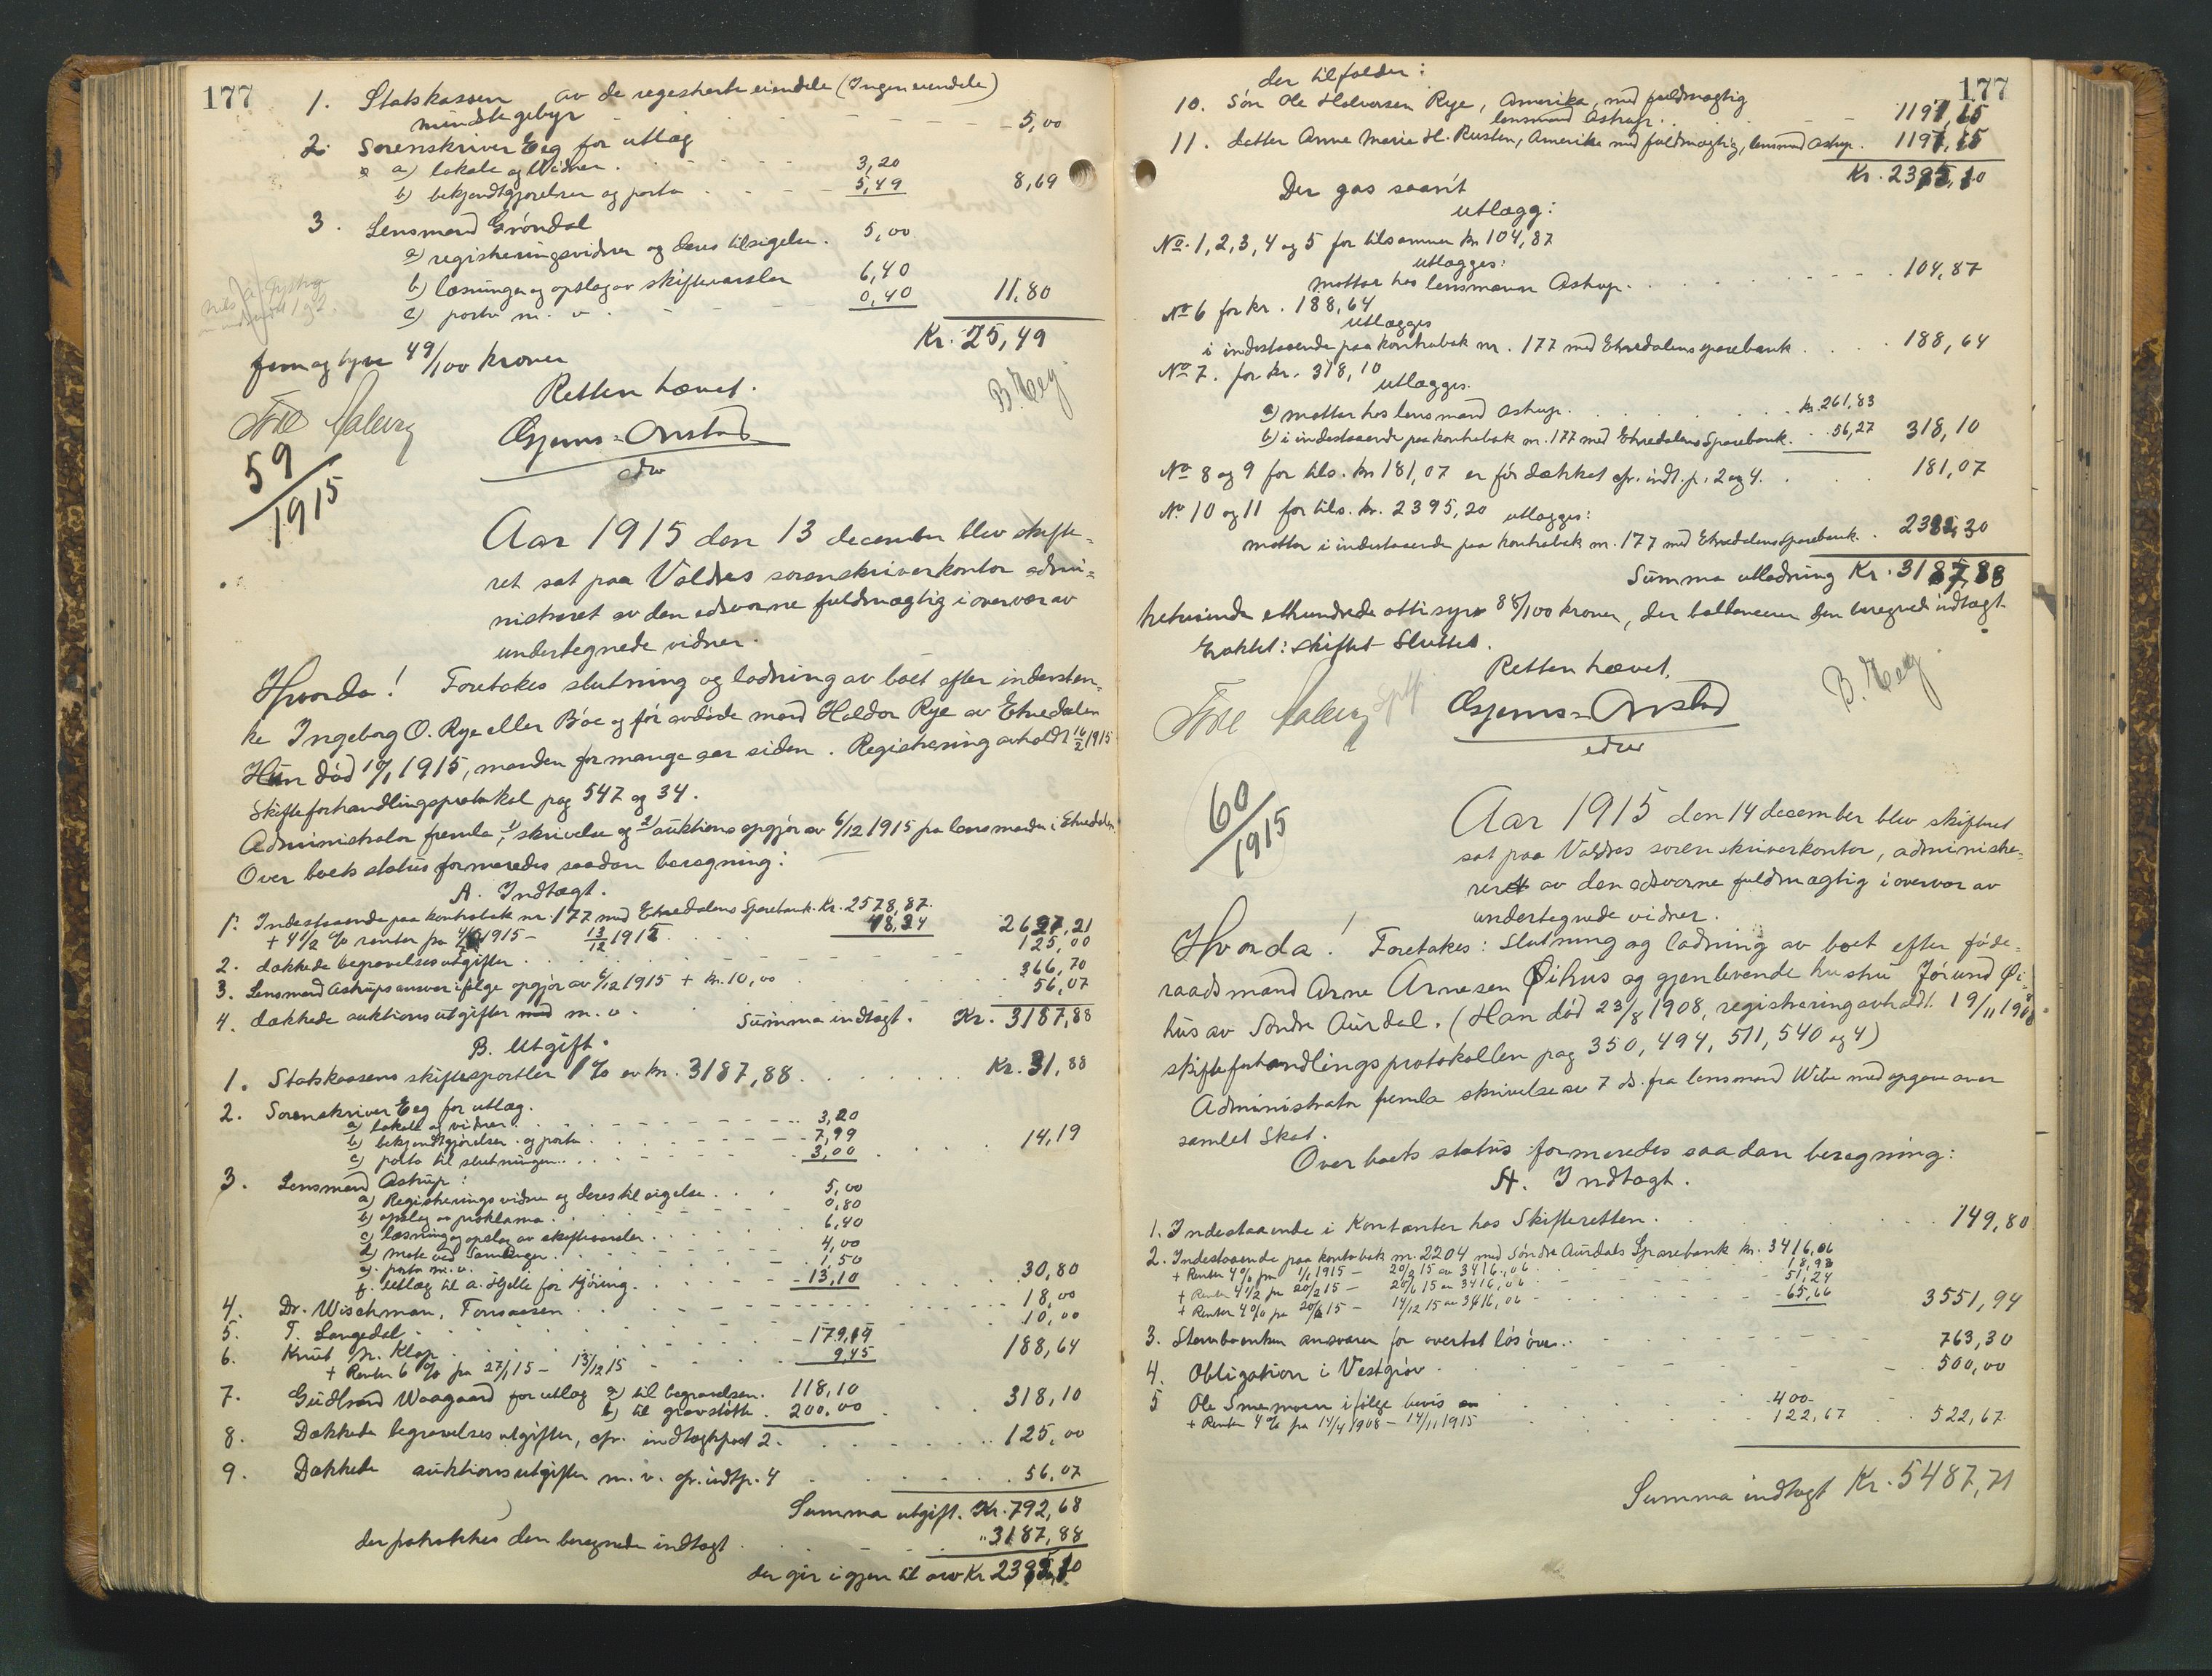 177
1. Statskassen av de registrerte eiendele (Ingen eiendele)
mindste gebyr - 5,00
2. Sorenskriver Eeg for utlæg
a) lokale og Vidner. 3,20
b) bekjendtgjørelser og porto 5,49 8,69
3. Lensmand Grøndal
a) registreringsvidner og deres tilsigelse. 5,00
b) læsninger og opslag av skiftevarsler 6,40
c) porto m. v. 0,40 11,80
Kr. 25,49
fem og tyve 49/100 kroner
Retten hævet.
B. Eeg
Gjems-Onstad
edsv
59/1915
Aar 1915 den 13 december blev skifte-
ret sat paa Valdres sorenskriverkontor admi-
nistreret av den edsvorne fuldmægtig i overvær av
undertegnede vidner.
Hvorda! Foretokes slutning og lodning av boet efter indersten-
ke Ingeborg O. Rye eller Böe og før avdøde mand Haldor Rye av Etnedalen
Hun død 10/1 1915, manden for mange aar siden. Registrering avholdt 16/2 1915
Skifteforhandlingsprotokol pag 547 og 34.
Administrator fremla 1) skrivelse og 2) auktionsopgjør av 6/12 1915 fra lensmanden i Etnedalen
Over boets status formeredes saadan beregning:
A. Indtægt.
1. Indestaaende paa kontrabok nr. 177 med Etnedalens Sparebank. Kr. 2578,87.
+ 4 1/2 % renter fra 1915 - 13/12 1915 2627,21
2. dækkede begravelsesutgifter 125,00
3. Lensmand Astrups ansvar ifølge opgjør av 6/12 1915 + kr. 10,00 366,70
4. dækkede auktionsutgifter m. v. 56,07
Summa indtægt. Kr. 3187,88
B. Utgift.
1. Statskassens skiftesportler 1% av kr. 3187,88. Kr. 31,88
2. Sorenskriver Eeg for utlæg.
a) lokale og vidner. 3,20
b) bekjendtgjørelser og porto. 7,99
c) porto til slutningen. 3,00 14,19
3. Lensmand Astrup:
a) Registreringsvidner og deres tilsigelse. 5,00
b) opslag av proklama. 0,80
c) læsning og opslag av skiftevarsler. 6,40
d) møte ved samlinger. 4,00
e) porto m. v. 1,50
f. Utlæg til A. Hjelle for kjøring. 13,10 30,80
4. Dr. Wischman, Fornæsen 18,00
5. T. Langedal 10,00
6. Knut N. Klop 179,19
+ Renter 6 % fra 27/1 15 - 13/12 15 9,45 188,64
7. Gudbrand Waagaard for utlæg a) til begravelsen. 118,10
b) til gravstötte. 200,00 318,10
8. Dækkede begravelsesutgifter, cfr. indtægtpost 2. 125,00
9. Dækkede auktionsutgifter m. v. cfr. indtp. 4 56,07
Summa utgift. Kr. 792,68
der fratrækkes den beregnede indtægt " 3187,88
der gir igjen til arv Kr 2395,20
177
der tilfalder:
10. Søn Ole Halvorsen Rye, Amerika, med fuldmægtig
lensmand Astrup. 1197,
11. datter Anne Marie H. Rusten, Amerika med fuldmægtig, lensmand Astrup. 1197,
Kr. 2395,20
Der gas saant
utlægg:
No. 1, 2, 3, 4 og 5 for tilsammen kr 104,87
utlægges:
mottar hos lensmann Astrup. 104,87
No 6 for kr. 188,64
utlægges
i indestaaende paa kontrabok nr. 177 med Etnedalens sparebank 188,64
No 7. for kr. 318,10
utlægges.
a) mottar hos lensmand Astrup. kr. 261,83
b) i indestaaende paa kontrabok nr. 177 med Etnedalens Sparebank. 56,27 318,10
No 8 og 9 for tils. kr 181,07 er før dækket cfr. indt. p. 2 og 4. 181,07
No. 10 og 11 for tils. kr. 2395,20 utlægges:
mottar i indestaaende paa kontrabok nr. 177 med Etnedalens Sparebank.
Summa utlodning Kr. 3187,88
tretusinde ethundrede ottisyv 88/100 kroner, der ballancerer den beregnede indtægt
Eraktet: Skiftet Sluttet.
Retten hævet.
B. Eeg
Gjems-Onstad
edsv
60/1915
Aar 1915 den 14 december blev skifteret
sat paa Valdres sorenskriverkontor, administre-
rert av den edsvorne fuldmægtig i overvær av
undertegnede vidner.
Hvorda! Foretokes: Slutning og lodning av boet efter føde-
raadsmand Arne Arnesen Øihus og gjenlevende hustru Jørund Øi-
hus av Søndre Aurdal. (Han död 23/8 1908, registrering avholdt 19/11 1908
skifteforhandlingsprotokollen pag 350, 494, 511, 540 og 4)
Administrator fremla skrivelse av 7 ds. fra lensmand Wibe med opgave over
samlet Skat.
Over boets status formeredes saadan beregning:
A. Indtægt.
1. Indestaaende i Kontanter hos Skifteretten. 149,80
2. Indestaaende paa kontrabok nr. 2204 med Søndre Aurdals Sparebank kr. 3416,06
+ Renter 4% fra 1/1 1915 - 20/2 15 av 3416,06 18,98
+ Renter 4 1/2 fra 20/2 15 - 20/6 15 av 3416,06 51,24
+ Renter 4% fra 20/6 15 - 14/12 15 av 3416,06 65,66 3551,94
3. Stervboenken ansvarer for overtat løsöre. 763,30
4. Obligation i Vestgjøv 500,00
5 Ole Smemoen ifölge bevis 400-
+ Renter 4% fra 14/4 1908 - 14/11 1915 122,67 522,67
Summa indtægt Kr. 5487,71